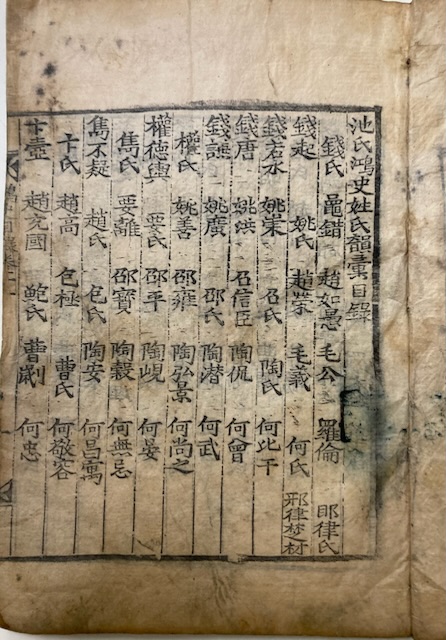 池氏鴻史姓氏韻彙目錄
錢氏 鼂錯 趙如愚 毛公 羅倫 耶律氏
錢起 姚氏 趙葵 毛義 何氏 邪律楚材
錢若水 姚崇 召氏 陶氏 何比干
錢唐 姚洪 召信臣 陶侃 何曾
錢 姚廣 邵氏 陶潛 何武
權氏 姚善 邵雍 陶弘景 何尚之
權德輿 要氏 邵平 陶峴 何晏
雋氏 要離 邵寶 陶穀 何無忌
雋不疑 趙氏 包氏 陶安 何昌寓
卞氏 趙高 包極 曹氏 何敬容
卞壼 趙充國 鮑氏 曹劌 何忠